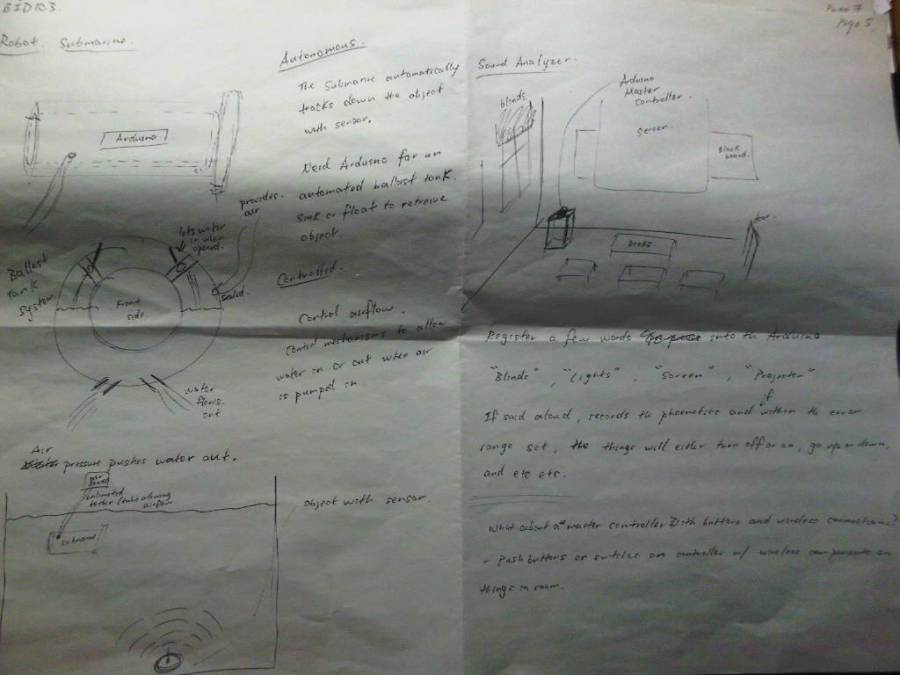 BID103
Page 5
Robot Submarine
Arduino
Autonomous.
The submarine automatically
tracks down the object
with sensor.
Need Arduino for an
automated ballast tank.
sink or float to retrieve
object.
Controlled.
Control airflow.
Control mechanisms to allow
water in or out when air
is pumped in.
provides
air
lets water
in when
opened.
Sealed.
Ballast
Tank
system
Front
side
water
flows
out
Air
pressure pushes water out.
unlimited
tether (tube allowing
airflow
submarine
object with sensor.
Sound Analyzer.
blinds
Arduino
Master
controller.
screen
Black
board.
Desks.
Register a few words into the Arduino
"Blinds", "Lights", "Screen", "Projector"
If said aloud, records the phonetics and if within the error
range set, the things will either turn off or on, go up or down,
and etc etc.
What about a master controller with buttons and wireless connections?
- Push buttons or switches on controller w/ wireless components on
things in room.